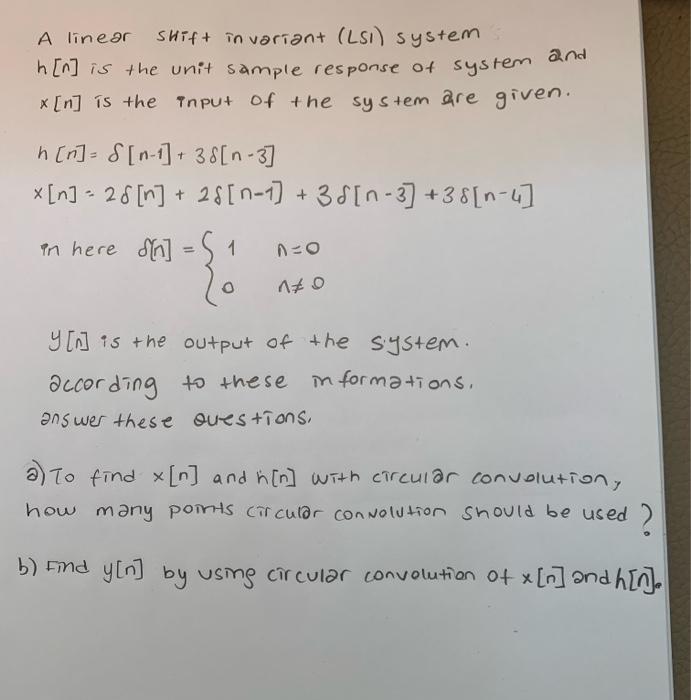 A linear shift invariant (LSI) system
h[n] is the unit sample response of system and
x[n] is the input of the system are given.
h[n] = δ[n-1] + 3δ[n-3]
x[n] = 2δ[n] + 2δ[n-1] + 3δ[n-3] + 3δ[n-4]
in here δ[n] = { 1 n=0
0 n≠0
y[n] is the output of the system.
according to these informations,
answer these questions,
a) To find x[n] and h[n] with circular convolution,
how many points circular convolution should be used?
b) Find y[n] by using circular convolution of x[n] and h[n].